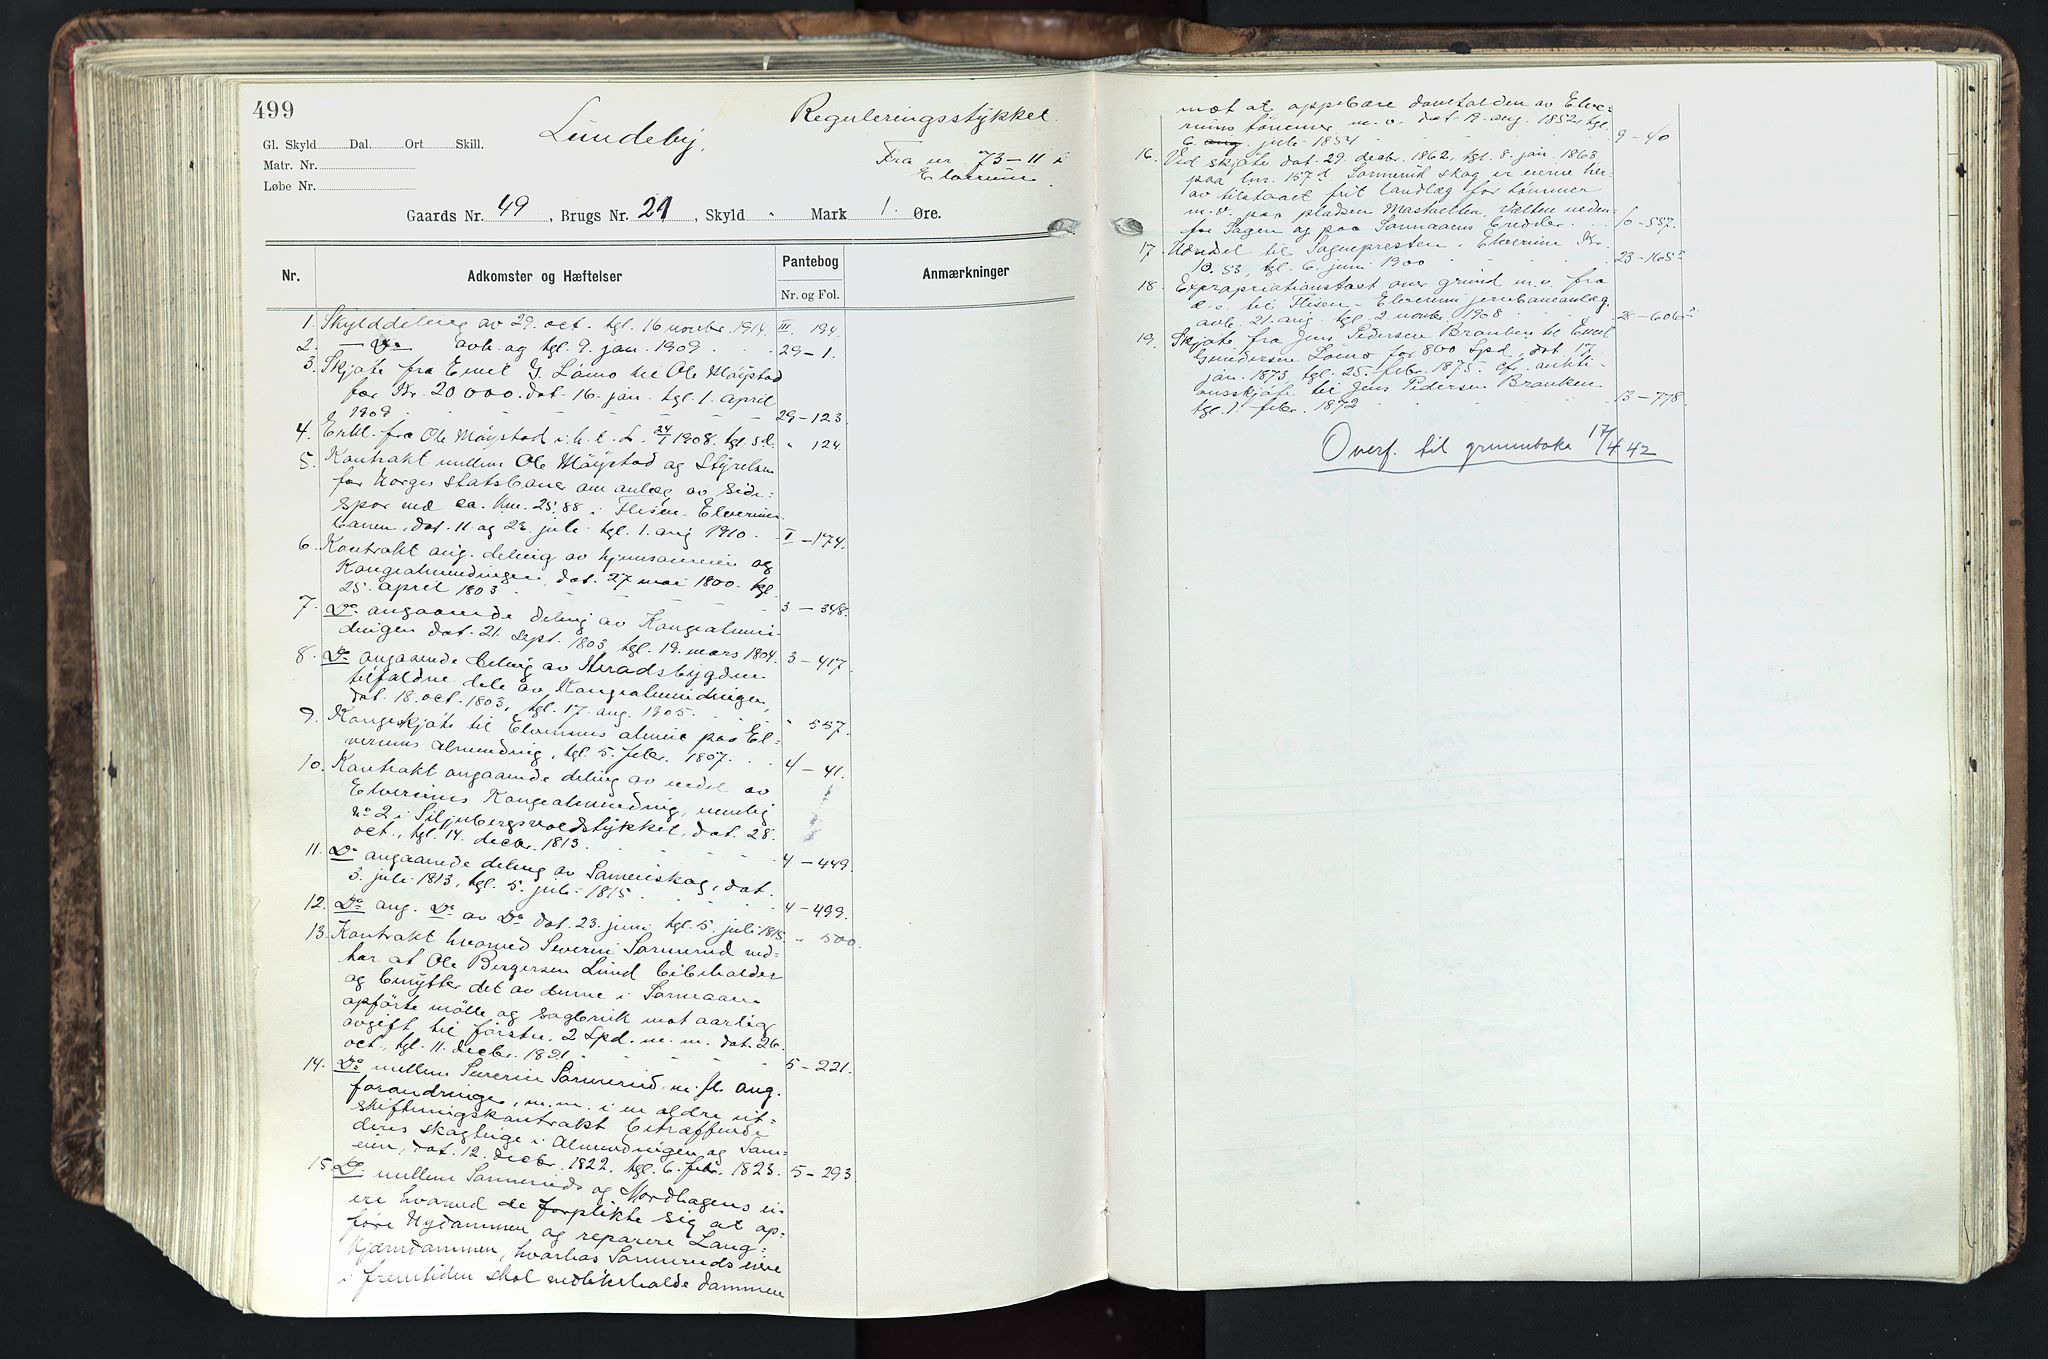 499
Lundeby.
Reguleringsstykket.
Gl. Skyld Dal. Ort Skill.
Matr. Nr.
Løbe Nr.
Fra nr. 73-11 i
Elverum.
Gaards Nr. 49, Brugs Nr. 21, Skyld " Mark 1 Øre.
Nr. Adkomster og Hæftelser Pantebog Anmærkninger
Nr. og Fol.
1. Skylddeling av 29. oct. tgl. 16 novbr. 1914. III - 194.
2. - Do avh. og tgl. 9. jan. 1909 29-1.
3. Skjøte fra Emil G. Lømo til Ole Møystad
for Kr. 20 000. dat. 16. jan. tgl. 1. april
1909 29-123.
4. Erkl. fra Ole Møystad i h. t. L. 24/7 1908. tgl. s.d. " 124.
5. Kontrakt mellem Ole Møystad og Styrelsen
for Norges Statsbaner om anlæg av side-
spor ved ca. km. 25,88 i Flisen-Elverum
banen, dat. 11 og 23 juli tgl. 1. aug 1910. I-174.
6. Kontrakt ang. deling av hjemsameien og
Kongealmendingen, dat. 27 mai 1800. tgl.
25. april 1803 3-348.
7. Do angaaende deling av Kongealmen-
dingen dat. 21. Sept. 1803, tgl. 19. mars 1804. 3-417.
8. Do angaaende deling av Stradsbygden
tilfaldne dele av Kongealmendingen,
dat. 18. oct. 1803, tgl. 17. aug. 1905. " 557.
9. Kongeskjøte til Elverums almue paa El-
verums almending, tgl. 5. febr. 1807. 4-41.
10. Kontrakt angaaende deling av endel av
Elverums Kongealmending, nemlig
No 2 i Siljubergsvoldstykket, dat. 28.
oct., tgl. 14. decbr. 1813. 4-449.
11. Do angaaende deling av Sameiskog, dat.
3. juli 1813, tgl. 5. juli 1815. 4-499.
12. Do ang. Do av Do dat. 23. juni tgl. 5. juli 1815. " 500.
13. Kontrakt hvorved Severin Sørmerud ved-
tar at Ole Bergersen Lund bibeholder
og benytter det av denne i Sørmaaen
opførte mølle og sagbruk mot aarlig
avgift til første. 2 Spd. m. m. dat. 26.
oct., tgl. 11. decbr. 1821. 5-221.
14. Do mellem Severin Sørmerud m. fl. ang.
forandringer, m. m. i en ældre ut-
skiftningskontrakt betræffende
deres skogteige i Almendingen og Sam-
eien, dat. 12. decbr. 1822, tgl. 6. febr. 1823. 5-293
15. Do mellem Sørmeruds og Nordhagens ei-
ere hvorved de forplikte sig at op-
føre Nydammen og reparere Lang-
kjerndammen, hvorhos Sørmeruds eiere
i fremtiden skal vedlikeholde dammen
mot at oppebære damtolden av Elve-
rums tømmer m. v. dat. 19. aug. 1852, tgl.
6. aug juli 1854 9-40
16. Ved skjøte dat. 29. decbr. 1862, tgl. 8. jan. 1863
paa lnr. 157d. Sørmerud skog er eierne her-
av tilstaaet frit landlæg for tømmer
m. v. paa pladsen Mastvelten, Vælten neden-
for Sagen og paa Sørmaaens bredder. 10-557.
17. Utvidel til Sogneprestem i Elverum Kr.
10.53, tgl. 6. juni 1900 23-165
18. Expropriationstakst over grund m. v. fra
d. e. til Flisen-Elverum jernbaneanlæg.
avh. 21. aug. tgl. 2 novbr. 1908 28-606
19. Skjøte fra Jens Pedersen Braaten til Emil
Gundersen Lømo for 800 Spd, dat 17.
jan. 1873, tgl. 25. febr. 1875. cfr. aukti-
onsskjøte til Jens Pedersen Braaten
tgl. 1. febr. 1872 13-778.
Overf. til grunnboka 17/4 42